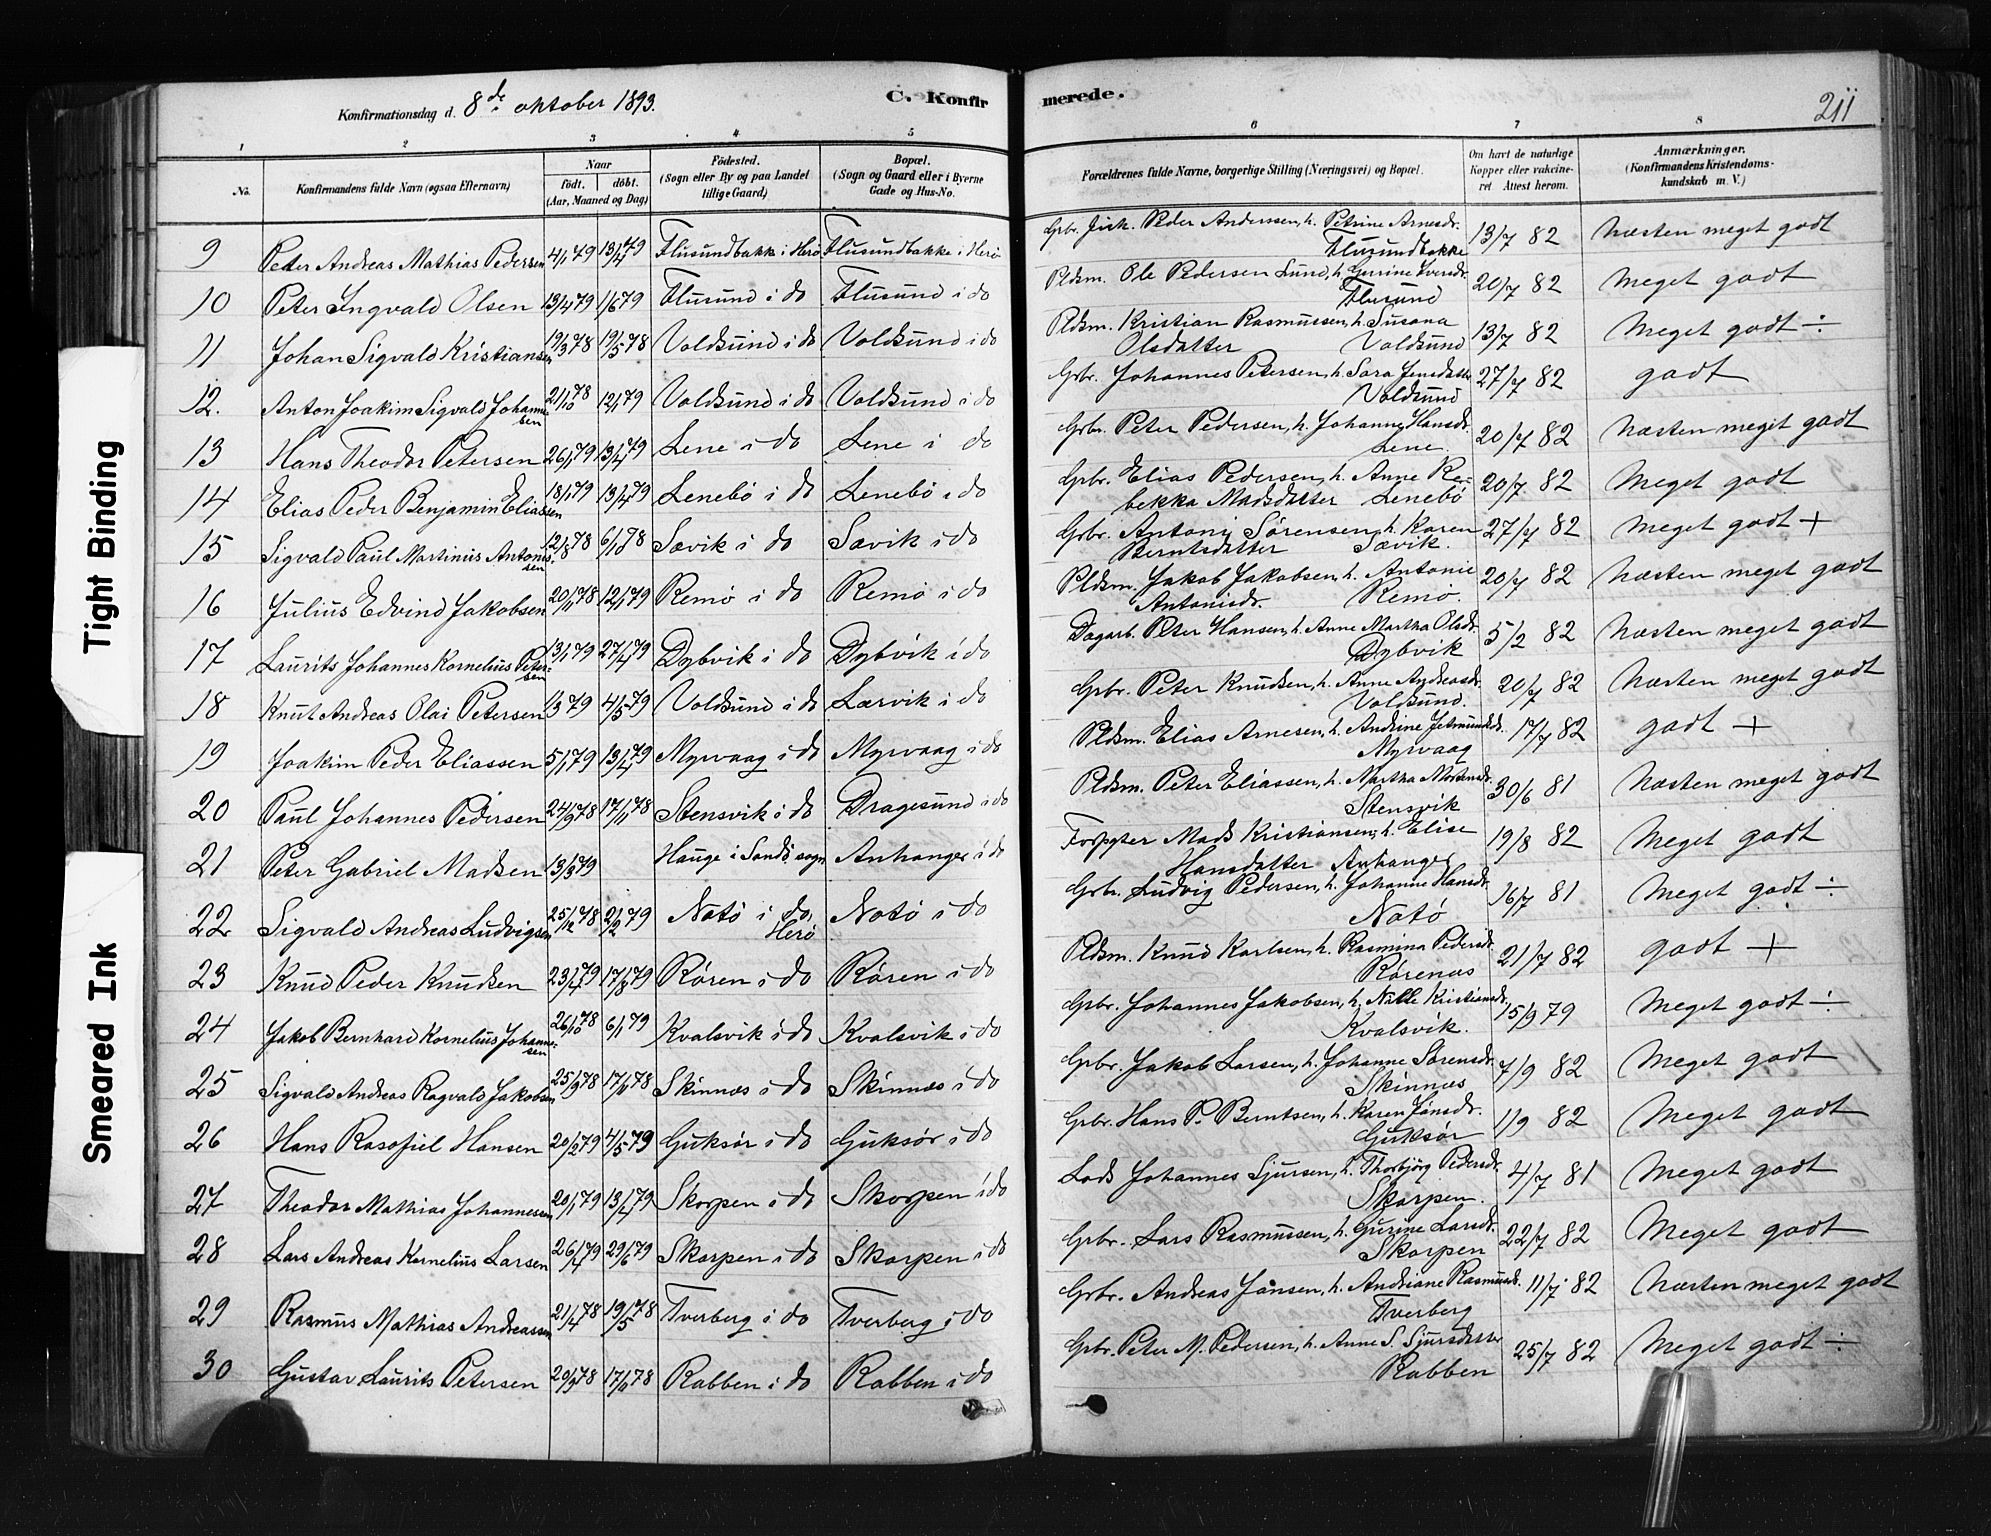 Konfirmationsdag d. 8de oktober 1893.
C. Konfirmerede.
211
1 2 3 4 5 6 7 8
No.
Konfirmandens fulde Navn (ogsaa Efternavn)
Naar
födt. döbt.
(Aar, Maaned og Dag)
Födested.
(Sogn eller By og paa Landet
tillige Gaard)
Bopæl.
(Sogn og Gaard eller i Byerne
Gade og Hus-No.
Forældrenes fulde Navne, borgerlige Stilling (Næringsvei) og Bopæl.
Om havt de naturlige
Kopper eller vakcine-
ret Attest herom.
Anmærkninger.
(Konfirmandens Kristendoms-
kundskab m. V.)
9 Peter Andreas Mathias Pedersen 4/1 79 13/4 79 Flusundbakk i Herö Flusundbakke i Herö Grbr. Peder Anderssen, h. Petrine Arnesdr. Flusundbakke 13/7 82 Næsten meget godt
10 Peter Ingvald Olsen 13/4 79 1/6 79 Flusund i do Flusund i do Pldsm. Ole Pedersen Lund, h. Gurine Iversdr. Flusund 20/7 82 Meget godt
11 Johan Sigvald Kristiansen 19/3 78 19/5 78 Voldsund i do Voldsund i do Pldsm. Kristian Rasmussen, h. Susana Olsdatter Voldsund 13/7 82 Meget godt ÷
12. Anton Joakim Sigvald Johannessen 21/10 78 12/1 79 Voldsund i do Voldsund i do Grbr. Johannes Petersen, h. Sara Jensdatter Voldsund 27/7 82 godt
13 Hans Theodor Petersen 26/1 79 13/4 79 Lene i do Lene i do Grbr. Peter Pedersen, h. Johanne Hansdr. Lene. 20/7 82 Næsten meget godt
14 Elias Peder Benjamin Eliassen 18/1 79 13/4 79 Lenebö i do Lenebö i do Grbr. Elias Pedersen, h. Anne Rebekka Madsdatter Lenebö 20/7 82 Meget godt
15 Sigvald Paul Martinus Antonissen 12/8 78 6/10 78 Sævik i do Sævik i do Grbr. Antoni Sörensen, h. Karen Berntsdatter Sævik. 27/7 82 Meget godt +
16 Julius Edvind Jakobsen 20/11 78 12/1 79 Remö i do Remö i do Pldsm. Jakob Jakobsen, h. Antonie Antonisdr. Remö. 20/7 82 Næsten meget godt
17 Laurits Johannes Kornelius Petersen 13/1 79 27/4 79 Dybvik i do Dybvik i do Dagarb. Peter Hansen, h. Anne Martha Olsdr. Dybvik 5/2 82 Næsten meget godt
18 Knut Andreas Olai Petersen 1/3 79 4/5 79 Voldsund i do Larvik i do Grbr. Peter Knudsen, h. Anne Andreasdr. Voldsund. 20/7 82 Næsten meget godt
19 Joakim Peder Eliassen 5/1 79 13/4 79 Myrvaag i do Myrvaag i do Pldsm. Elias Arnesen, h. Andrine Jetmundsdr. Myrvaag 17/7 82 godt +
20 Paul Johannes Pedersen 24/9 78 17/11 78 Stensvik i do Dragesund i do Pldsm. Peter Eliassen, h. Martha Mortensdr. Stensvik 30/6 81 Næsten meget godt
21 Peter Gabriel Madsen 13/3 79 Hauge i Sands sogn Anhanger i do Forpgter Mads Kristiansen, h. Elise Hansdatter Anhanger 19/8 82 Meget godt
22 Sigvald Andreas Ludvigsen 25/12 78 2/2 79 Notö i do, Herö Notö i do Grbr. Ludvig Pedersen, h. Johanne Hansdr. Notö 16/7 81 Meget godt ÷
23 Knud Peder Knudsen 23/4 79 17/8 79 Rören i do Rören i do Pldsm. Knud Karlsen, h. Rasmina Pedersdr. Rörenas 21/7 82 godt +
24 Jakob Bernhard Kornelius Johannessen 26/10 78 6/1 79 Kvalsvik i do Kvalsvik i do Grbr. Johannes Jakobsen, h. Nille Kristiansdr. Kvalsvik. 15/9 79 Meget godt ÷
25 Sigvald Andreas Ragvald Jakobsen 25/9 78 17/11 78 Skinnæs i do Skinnæs i do Grbr. Jakob Larsen, h. Johanne Sörensdr. Skinnæs 7/9 82 Meget godt
26 Hans Rasofiel Hansen 20/2 79 4/5 79 Guksör i do Guksör i do Grbr. Hans P. Berntsen, h. Karen Jönsdr. Guksör 1/9 82 Meget godt
27 Theodor Mathias Johannessen 20/1 79 13/4 79 Skorpen i do Skorpen i do Lods Johannes Sjursen, h. Thorbjörg Pedersdr. Skorpen. 4/7 81 Meget godt
28 Lars Andreas Kornelius Larsen 26/4 79 29/6 79 Skorpen i do Skorpen i do Grbr. Lars Rasmussen, h. Gurine Larsdr. Skorpen 22/7 82 Meget godt
29 Rasmus Mathias Andreassen 21/4 78 19/5 78 Tverberg i do Tverberg i do Grbr. Andreas Jönsen, h. Andriane Rasmusdr. Tverberg 11/7 82 Næsten meget godt
30 Gustav Laurits Petersen 29/9 78 17/11 78 Rabben i do Rabben i do Grbr. Peter M. Pedersen, h. Anne S. Sjursdatter Rabben 25/7 82 Meget godt ÷
Tight Binding
Smeared Ink